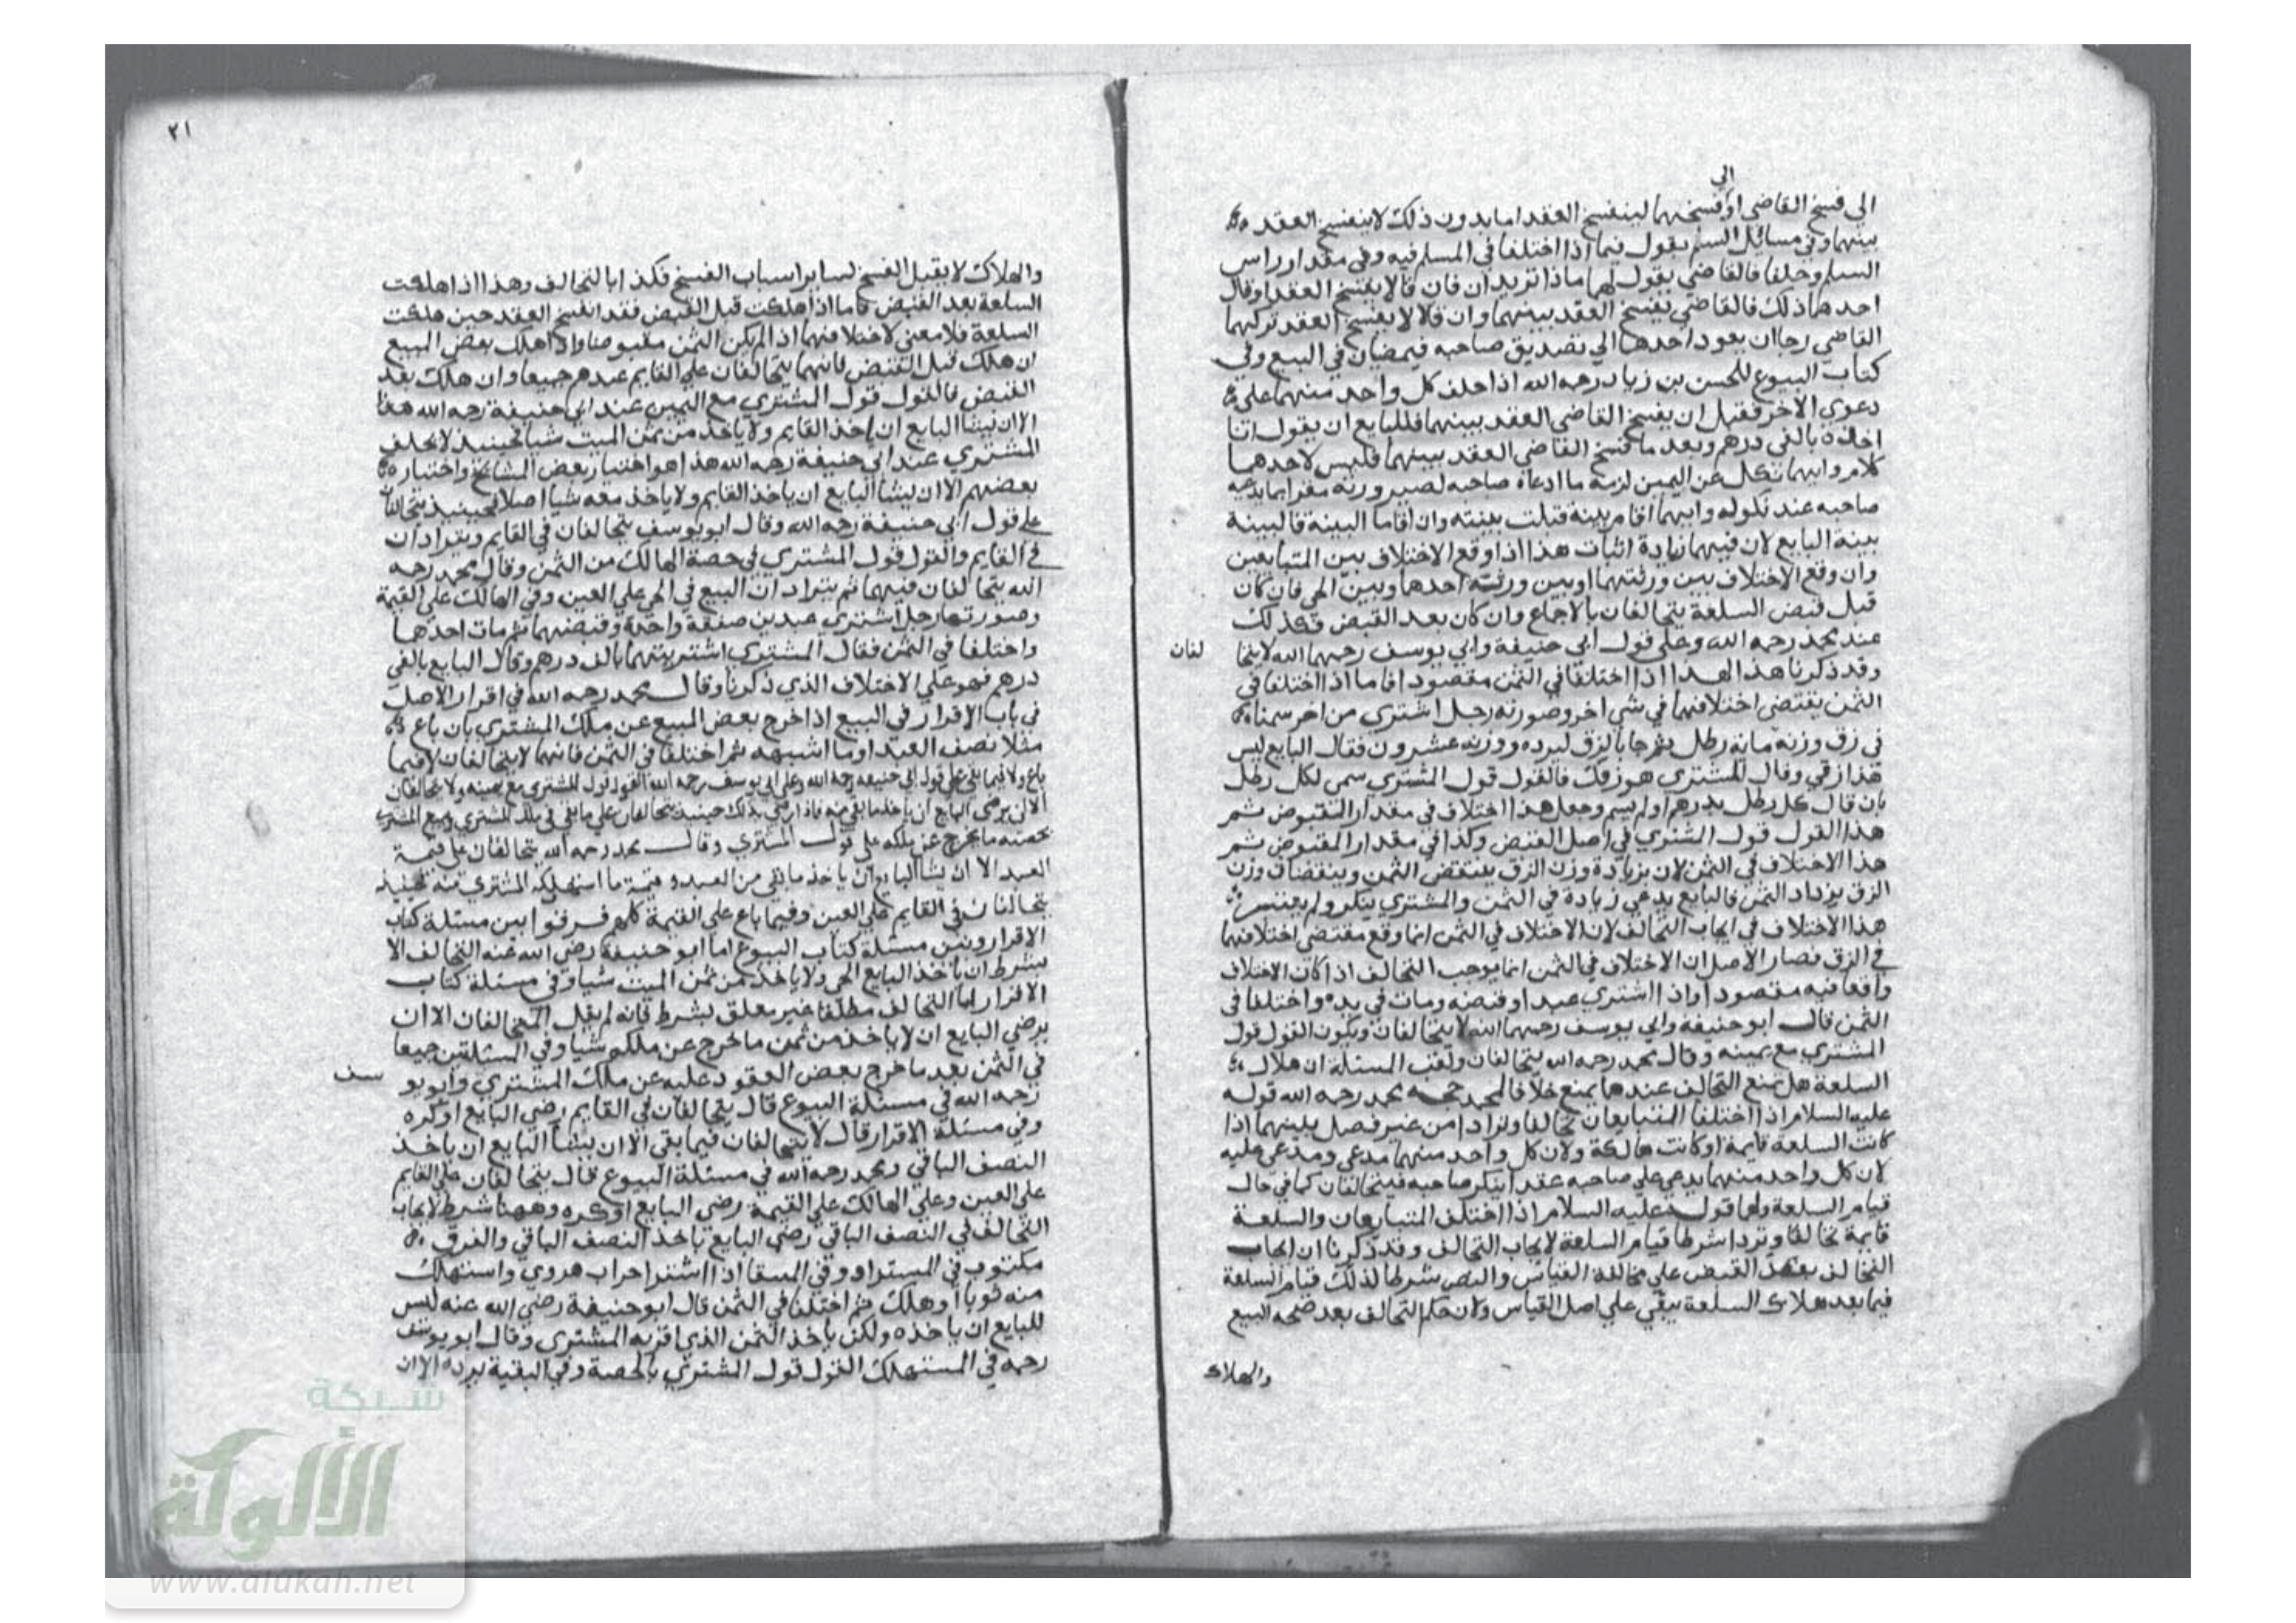 الي
الى فسخ القاضي او فسخهما لينفسخ العقد اما بدون ذلك لا ينفسخ العقد
بينهما وفي مسائل السلم يقول فيما اذا اختلفا في المسلم فيه وفي مقدار راس
السلم وحلفا فالقاضي يقول لهما ماذا تريدان فان قالا يفسخ العقد او قال
احدهما ذلك فالقاضي يفسخ العقد بينهما وان قالا لا يفسخ العقد تركهما
القاضي رجا ان يعود احدهما الي تصديق صاحبه فيمضيان في البيع وفي
كتاب البيوع للحسن بن زياد رحمه الله اذا حلف كل واحد منهما على
دعوي الاخر فقبل ان يفسخ القاضي العقد بينهما فللبايع ان يقول انا
اخذه بالفى درهم وبعد ما فسخ القاضي العقد بينهما فليس لاحدهما
كلام وايهما نكل عن اليمين لزمه ما ادعاه صاحبه لصيرورته مقرا بما يدعيه
صاحبه عند نكوله وايهما اقام بينة قبلت بينته وان اقاما البينة فالبينة
بينة البايع لان فيهما زيادة اثبات هذا اذا وقع الاختلاف بين المتبايعين
وان وقع الاختلاف بين ورثتهما او بين ورثة احدهما وبين الحي فان كان
قبل قبض السلعة يتحالفان بالاجماع وان كان بعد القبض فكذلك
عند محمد رحمه الله وعلى قول ابي حنيفة وابي يوسف رحمهما الله لا يتحا
لفان
وقد ذكرنا هذا اذا اختلفا في الثمن مقصودا فاما اذا اختلفا في
الثمن بمقتضى اختلافهما في شي اخر وصورته رجل اشتري من اخر سمنا
في زق وزنه ماية رطل ثم جا بالزق ليرده ووزنه عشرون فقال البايع ليس
هذا زقي وقال المشتري هو زقك فالقول قول المشتري سمى لكل رطل
بان قال كل رطل بدرهم او لم يسم وجعل هذا اختلاف في مقدار المقبوض ثم
هذا القول قول المشتري في اصل القبض وكذا في مقدار المقبوض ثم
هذا الاختلاف في الثمن لان بزيادة وزن الزق ينتقص الثمن وبنقصان وزن
الزق يزداد الثمن فالبايع يدعي زيادة في الثمن والمشتري ينكر ولم يعتبر
هذا الاختلاف في ايجاب التحالف لان الاختلاف في الثمن انما وقع مقتضى اختلافهما
في الزق فصار الاصل ان الاختلاف في الثمن انما يوجب التحالف اذا كان الاختلاف
واقعا فيه مقصودا واذا اشتري عبدا وقبضه ومات في يده واختلفا في
الثمن قال ابو حنيفة وابي يوسف رحمهما الله لا يتحالفان ويكون القول قول
المشتري مع يمينه وقال محمد رحمه الله يتحالفان ولقب المسئلة ان هلاك
السلعة هل يمنع التحالف عندهما يمنع خلافا لمحمد حجة محمد رحمه الله قوله
عليه السلام اذا اختلفا المتبايعان تحالفا وترادا من غير فصل بينهما اذا
كانت السلعة قايمة او كانت هالكة ولان كل واحد منهما مدعي ومدعي عليه
لان كل واحد منهما يدعي علي صاحبه عقدا ينكر صاحبه فيتحالفان كما في حال
قيام السلعة ولهما قوله عليه السلام اذا اختلف المتبايعان والسلعة
قايمة تحالفا وترادا شرطا قيام السلعة لايجاب التحالف وقد ذكرنا ان ايجاب
التحالف بعد القبض علي مخالفة القياس والنص شرط لذلك قيام السلعة
فيما بعد هلاك السلعة يبقي علي اصل القياس ولان حكم التحالف بعد صحه البيع
والهلاك
٢١
والهلاك لا يقبل الفسخ لسائر اسباب الفسخ فكذا بالتحالف وهذا اذا هلكت
السلعة بعد القبض فاما اذا هلكت قبل القبض فقد انفسخ العقد حين هلكت
السلعة فلا معنى لاختلافهما اذا لم يكن الثمن مقبوضا واذا هلك بعض المبيع
ان هلك قبل القبض فانهما يتحالفان علي القايم عندهم جميعا وان هلك بعد
القبض فالقول قول المشتري مع اليمين عند ابي حنيفة رحمه الله هذا
الا ان يشا البايع ان ياخذ القايم ولا ياخذ من ثمن الميت شيا فحينيذ لا يحلف
المشتري عند ابي حنيفة رحمه الله هذا هو اختيار بعض المشايخ واختيار
بعضهم الا ان يشا البايع ان ياخذ القايم ولا ياخذ معه شيا اصلا فحينيذ يتحالفان
على قول ابي حنيفة رحمه الله وقال ابو يوسف يتحالفان في القايم ويترادان
في القايم والقول قول المشتري في حصة الهالك من الثمن وقال محمد رحمه
الله يتحالفان فيهما ثم يترادان البيع في الحي علي العين وفي الهالك علي القيمة
وصورتها رجل اشتري عبدين صفقة واحدة وقبضهما ثم مات احدهما
واختلفا في الثمن فقال المشتري اشتريتهما بالف درهم وقال البايع بالفي
درهم فهو علي الاختلاف الذي ذكرنا وقال محمد رحمه الله في اقرار الاصل
في باب الاقرار في البيع اذا خرج بعض المبيع عن ملك المشتري بان باع
مثلا نصف العبد او ما اشبهه ثم اختلفا في الثمن فانهما لا يتحالفان لا فيما
باع ولا فيما بقي على قول ابي حنيفه رحمه الله وعلي ابي يوسف رحمه الله القول قول المشتري مع يمينه ولا يتحالفان
الا ان يرضى البايع ان ياخذ ما بقي منه فاذا رضي بذلك حينيذ يتحالفان علي ما بقي في ملك المشتري
بحصته ما يخرج عن ملكه على قول المشتري وقال محمد رحمه الله يتحالفان على قيمة
العبد الا ان يشا البايع ان ياخذ ما بقي من العبد وقيمة ما استهلكه المشتري منه فحينيذ
يتحالفان في القايم علي العين وفيما باع على القيمة كلهم فرقوا بين مسئلة كتاب
الاقرار وبين مسئلة كتاب البيوع اما ابو حنيفة رضي الله عنه التحالف الا
بشرط ان ياخذ البايع الحي ولا ياخذ من ثمن الميت شيا وفي مسئلة كتاب
الاقرار التحالف مطلقا غير معلق بشرط فانه لم يقل يتحالفان الا ان
يرضي البايع ان لا ياخذ من ثمن ما خرج عن ملكه شيا وفي المسئلتين جميعا
في الثمن بعد ما خرج بعض المعقود عليه عن ملك المشتري وابو يو
سف
رحمه الله في مسئلة البيوع قال يتحالفان في القايم رضي البايع او كره
وفي مسئلة الاقرار قال لا يتحالفان فيما بقي الا ان يشا البايع ان ياخذ
النصف الباقي ومحمد رحمه الله في مسئلة البيوع قال يتحالفان على القايم
علي العين وعلي الهالك علي القيمة رضي البايع او كره وههنا شرط لايجاب
التحالف في النصف الباقي رضي البايع باخذ النصف الباقي والفرق
مكتوب في المستزاد وفي المنتقا اذا اشتر اجراب هروي واستهلك
منه ثوبا او هلك ثم اختلفا في الثمن قال ابو حنيفة رضي الله عنه ليس
للبايع ان ياخذه ولكن ياخذ الثمن الذي اقر به المشتري وقال ابو يوسف
رحمه في المستهلك القول قول المشتري بالحصة وفي البقية يرده الا ان
شبكة
الألوكة
www.alukah.net